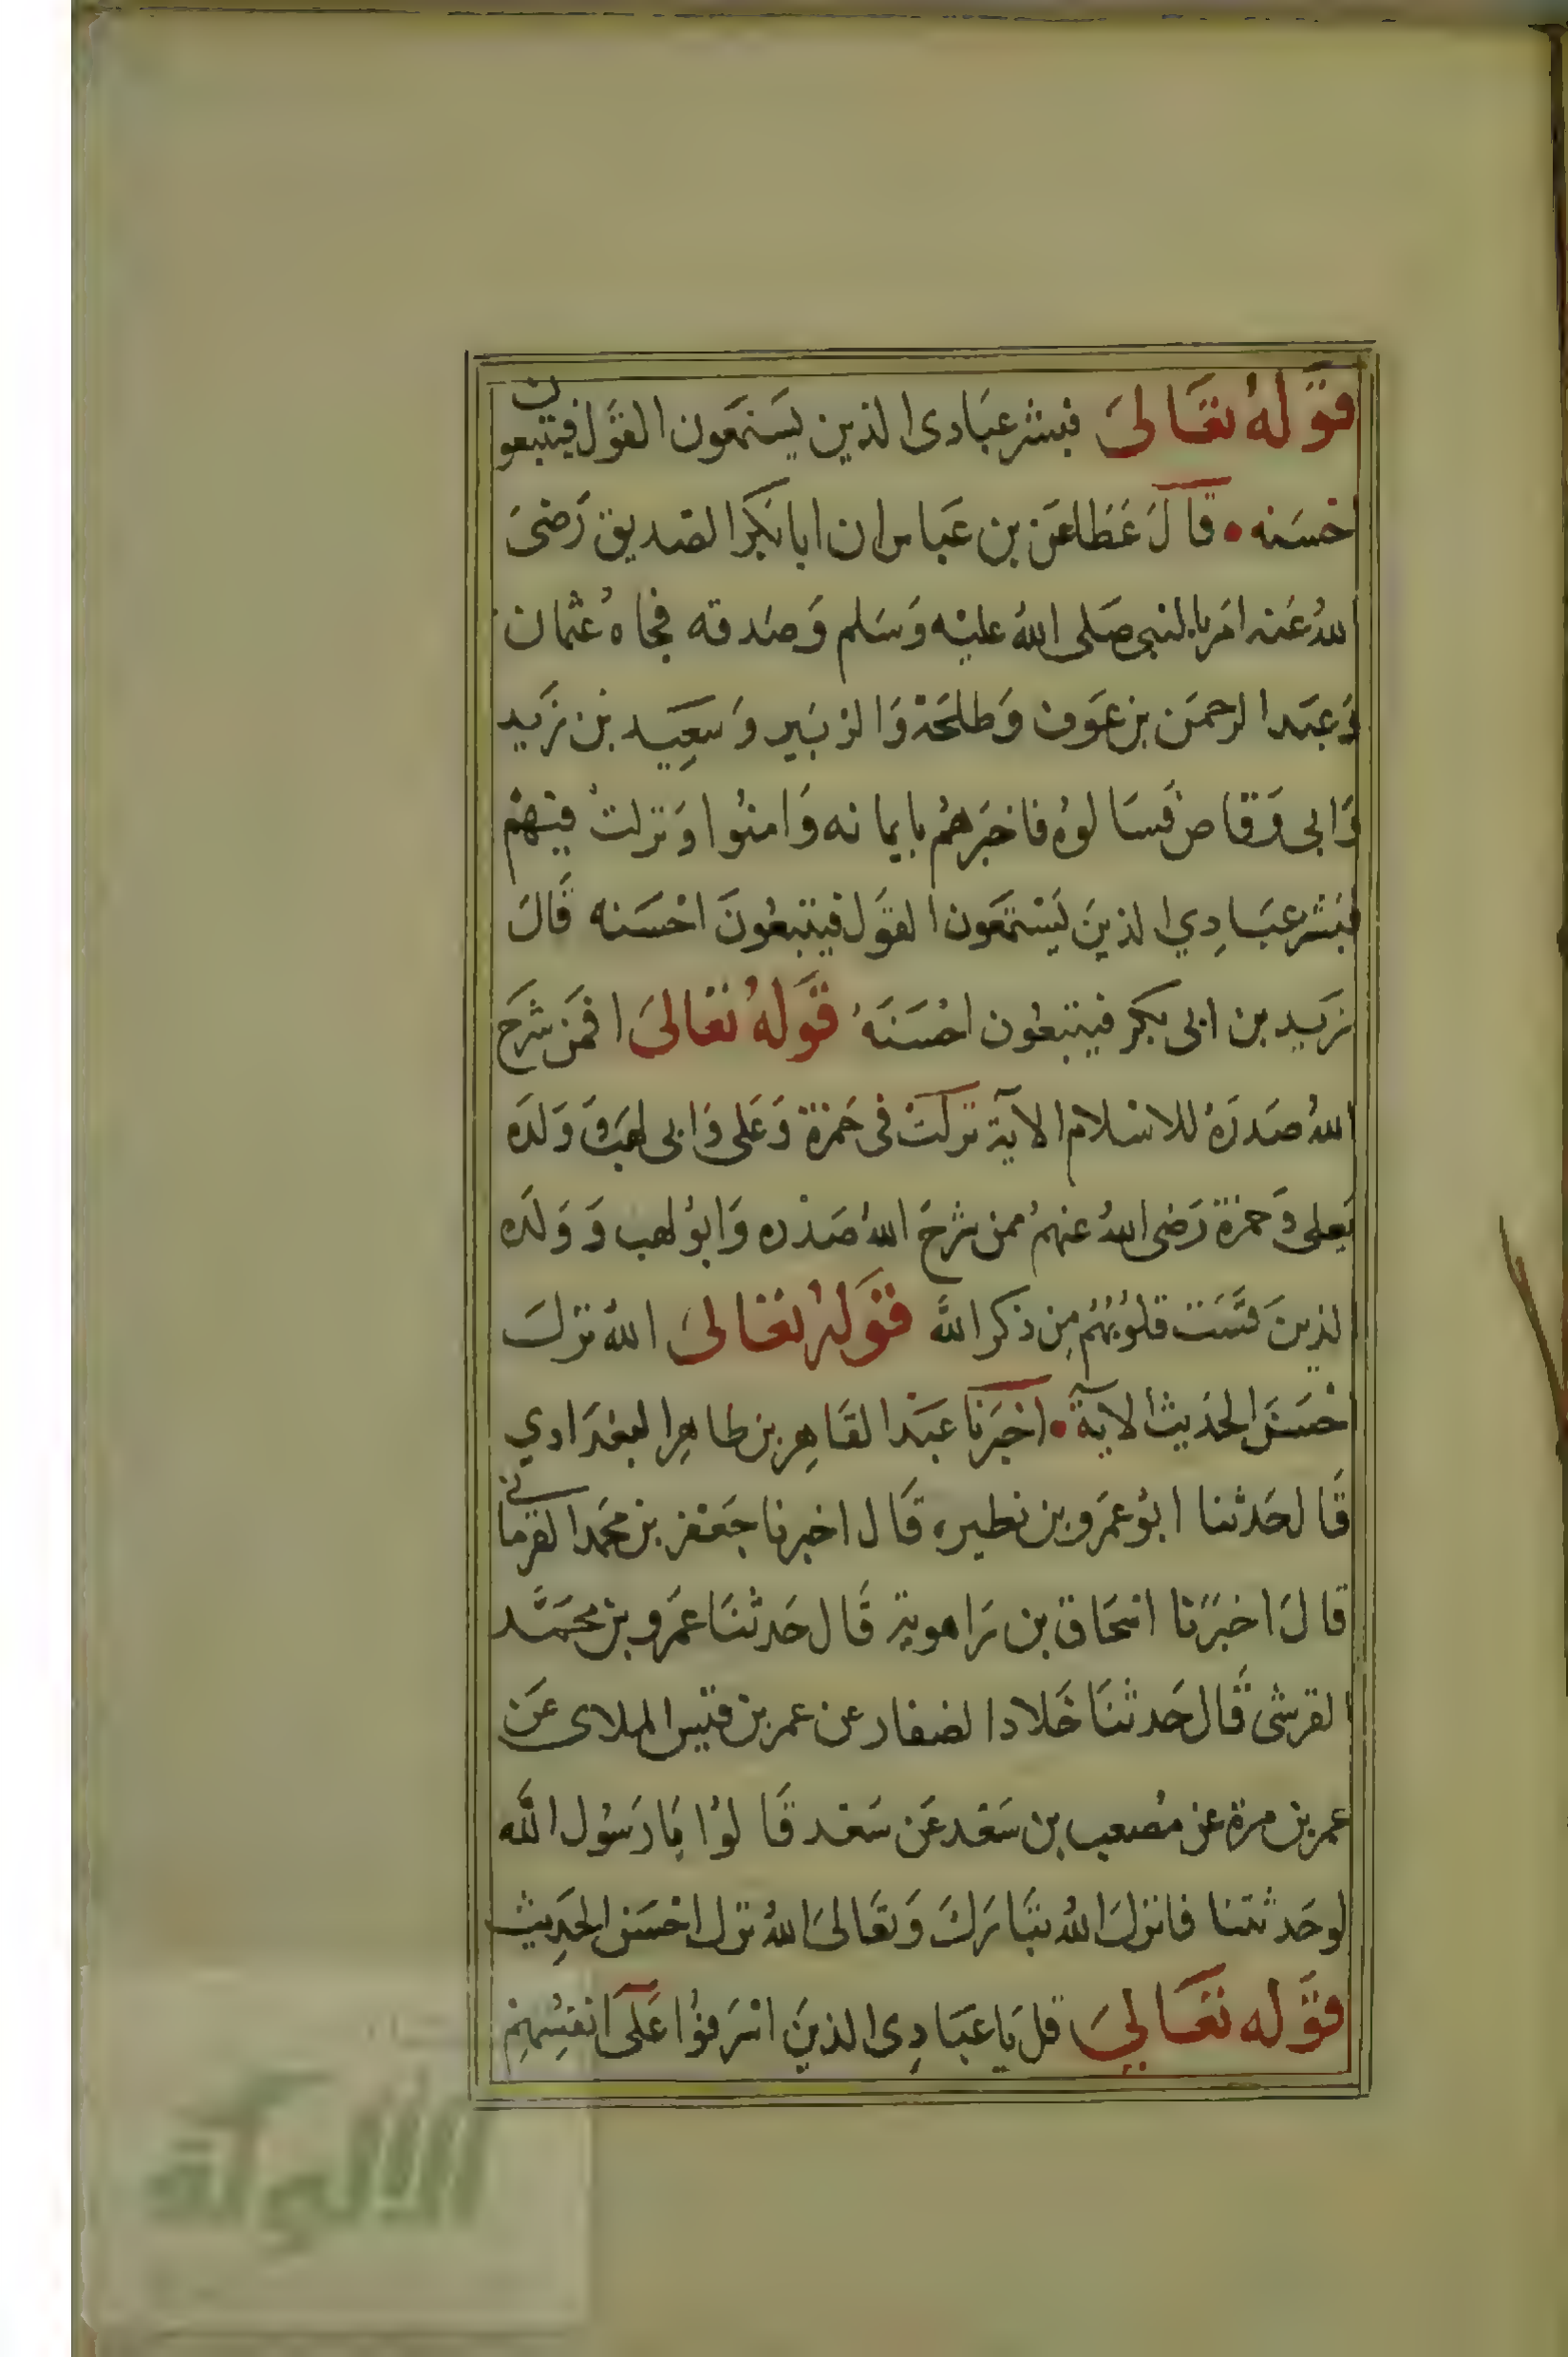 قوله تعالى فبشر عبادى الذين يستمعون القول فيتبعون
احسنه • قال عطا عن بن عباس ان ابا بكر الصديق رضى
الله عنه امن بالنبى صلى الله عليه وسلم وصدقه فجاه عثمان
وعبد الرحمن بن عوف وطلحة والزبير وسعيد بن زيد
وابى وقاص فسالوه فاخبرهم بايمانه وامنوا ونزلت فيهم
فبشر عبادي الذين يستمعون القول فيتبعون احسنه قال
يزيد بن ابى بكر فيتبعون احسنه قوله تعالى افمن شرح
الله صدره للاسلام الاية نزلت فى حمزة وعلى وابى لهب وولده
فعلى وحمزة رضى الله عنهم ممن شرح الله صدره وابو لهب وولده
الذين قست قلوبهم من ذكر الله قوله تعالى الله نزل
احسن الحديث الاية • اخبرنا عبد القاهر بن طاهر البغدادي
قال حدثنا ابو عمرو بن نطيره قال اخبرنا جعفر بن محمد القرمانى
قال اخبرنا اسحاق بن راهوية قال حدثنا عمرو بن محمد
القرشى قال حدثنا خلاد الضفار عن عمر بن قيس الملاى عن
عمر بن مرة عن مصعب بن سعد عن سعد قالوا يا رسول الله
لو حدثتنا فانزل الله تبارك وتعالى الله نزل احسن الحديث
قوله تعالى قل يا عبادى الذين اسرفوا على انفسهم
الألوكة